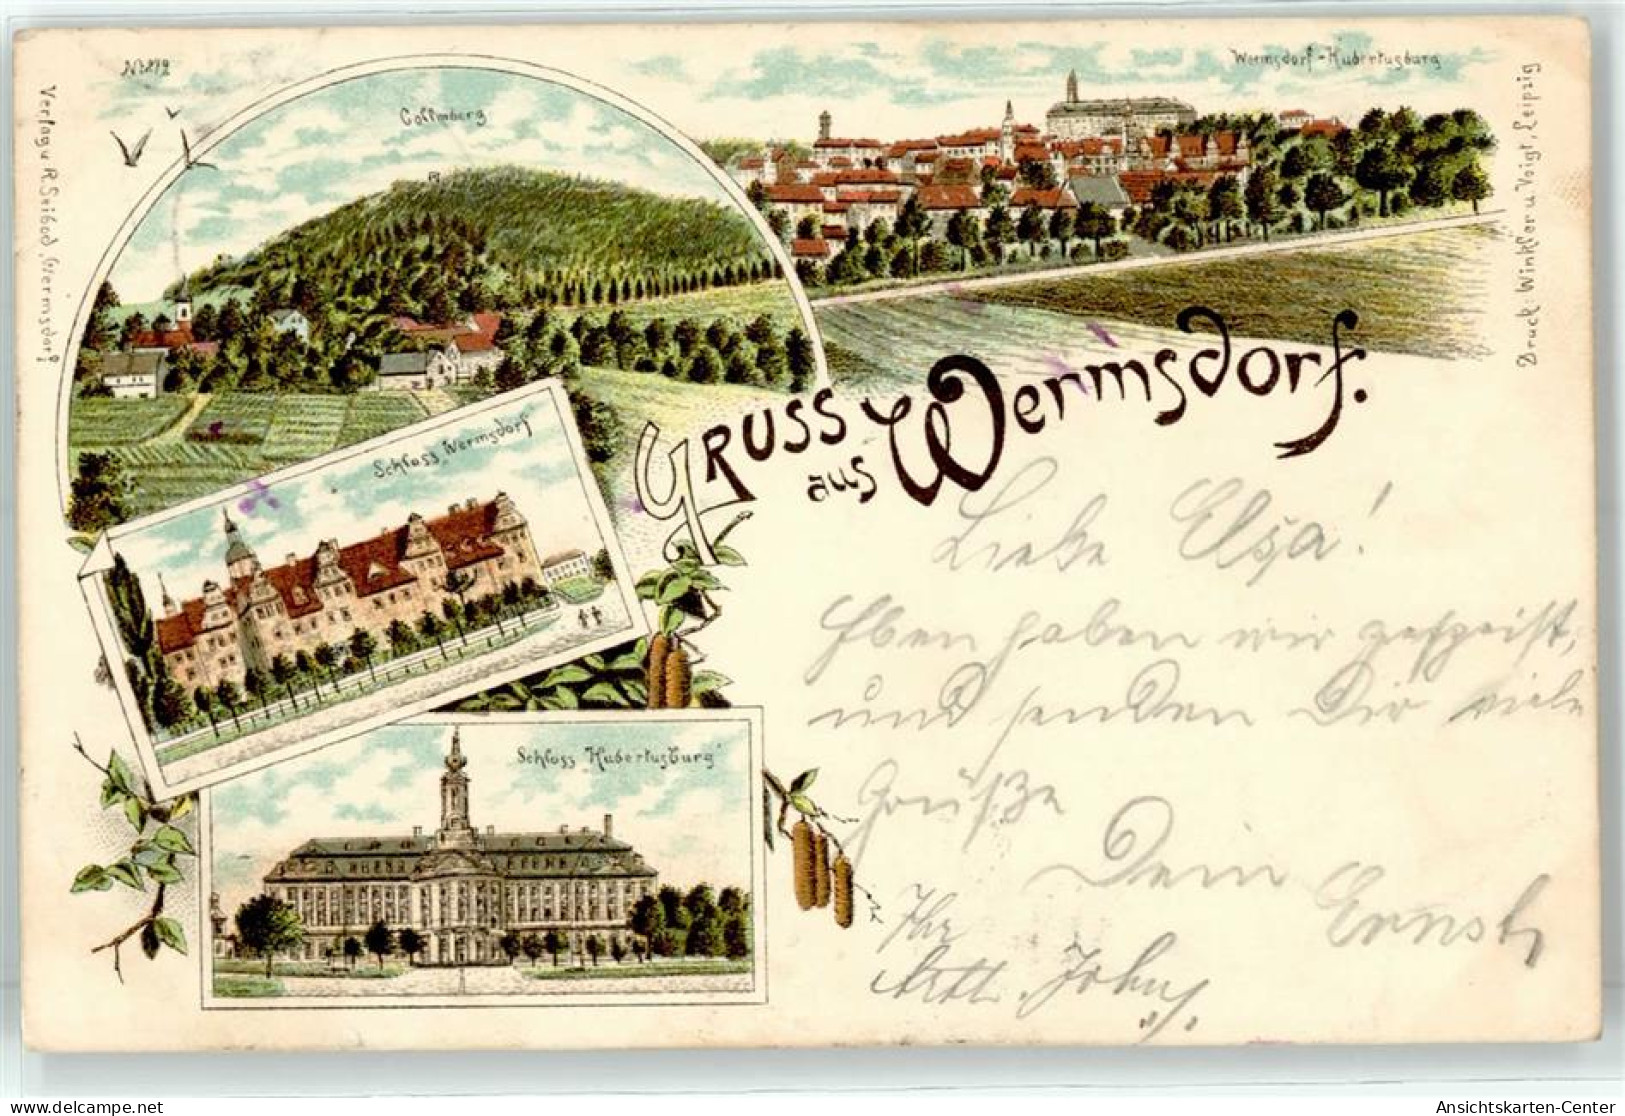 No 279
Collmberg
Wermsdorf-Hubertusburg
Verlag v R. Seibod, Wermsdorf
Druck Winkler u Voigt, Leipzig
GRUSS aus Wermsdorf.
Schloss „Wermsdorf"
Schloss „Hubertusburg"
Liebe Elsa!
Eben haben wir gespeist,
und senden Dir viele
Grüße
Dein
Ernst
Ihr
Arth. Johny
Ansichtskarten-Center